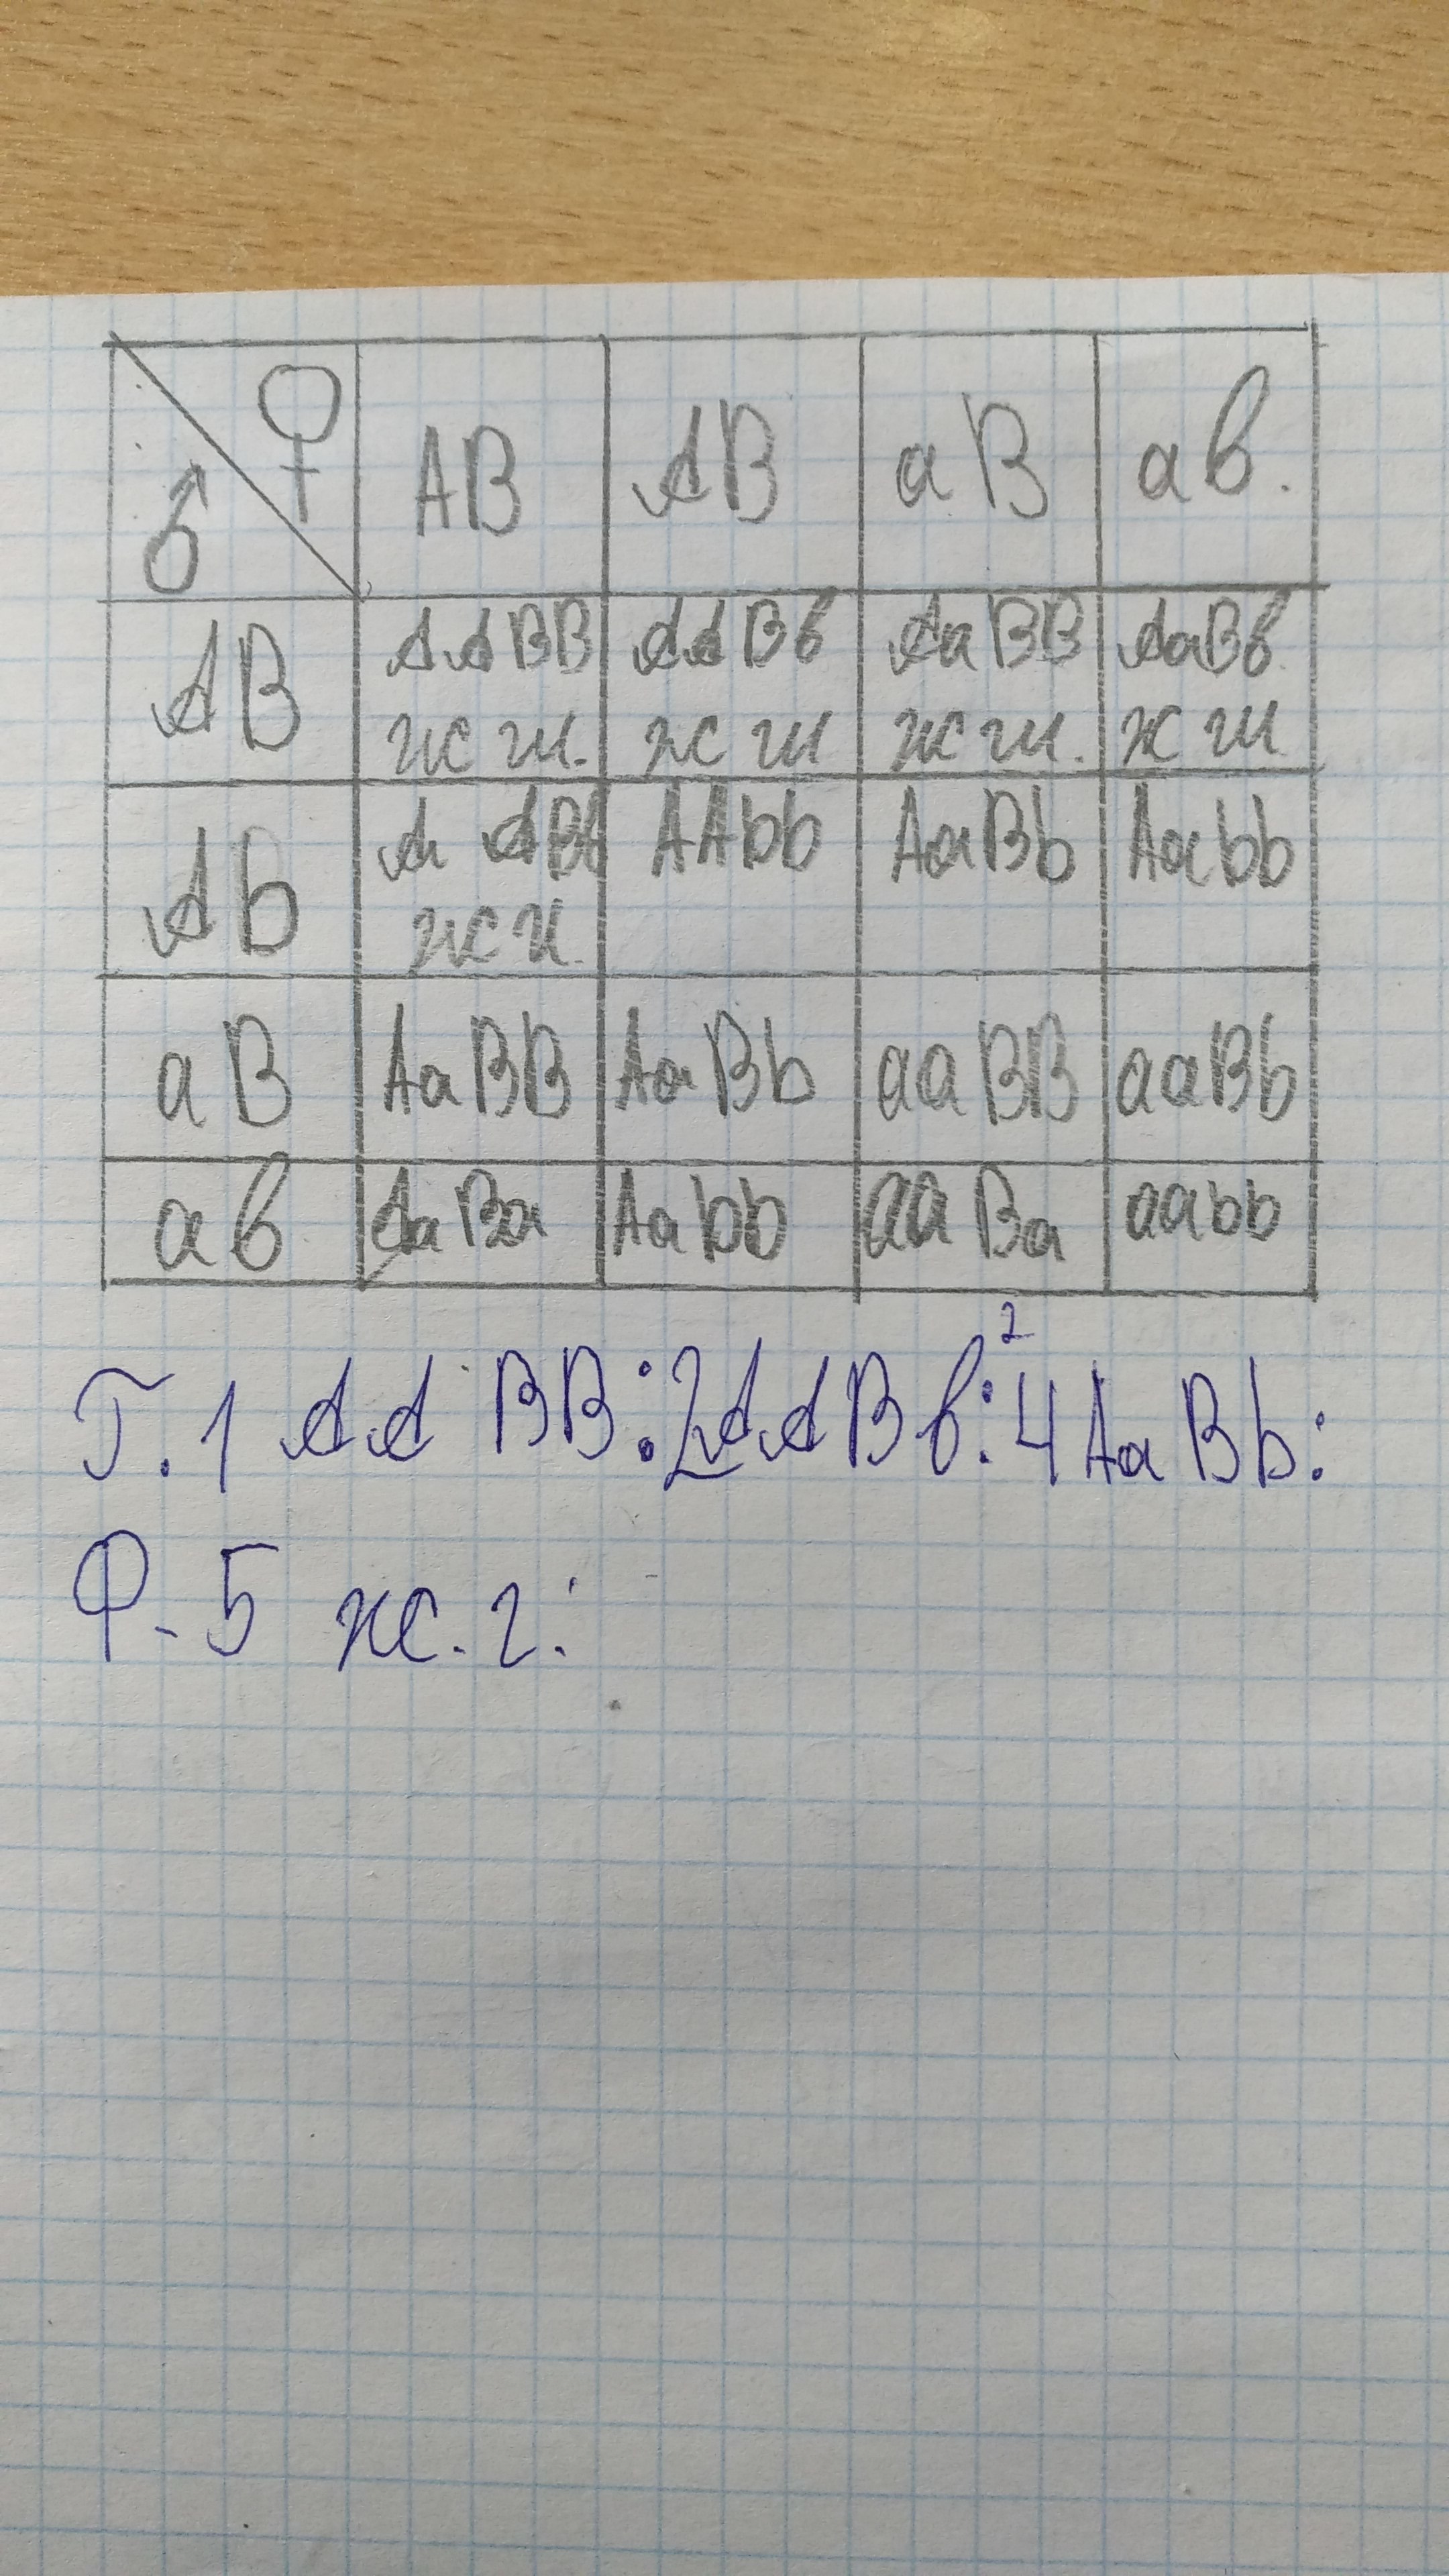 ♂ ♀ AB AB aB ab.
AB AABB AABb AaBB AaBb
ж ш. ж ш ж ш. ж ш
Ab AABb AAbb AaBb Aabb
ж ш.
aB AaBB AaBb aaBB aaBb
ab AaBa Aabb aaBa aabb
Г. 1 AA BB : 2AABb : 4AaBb :
2
Ф - 5 ж. г.: